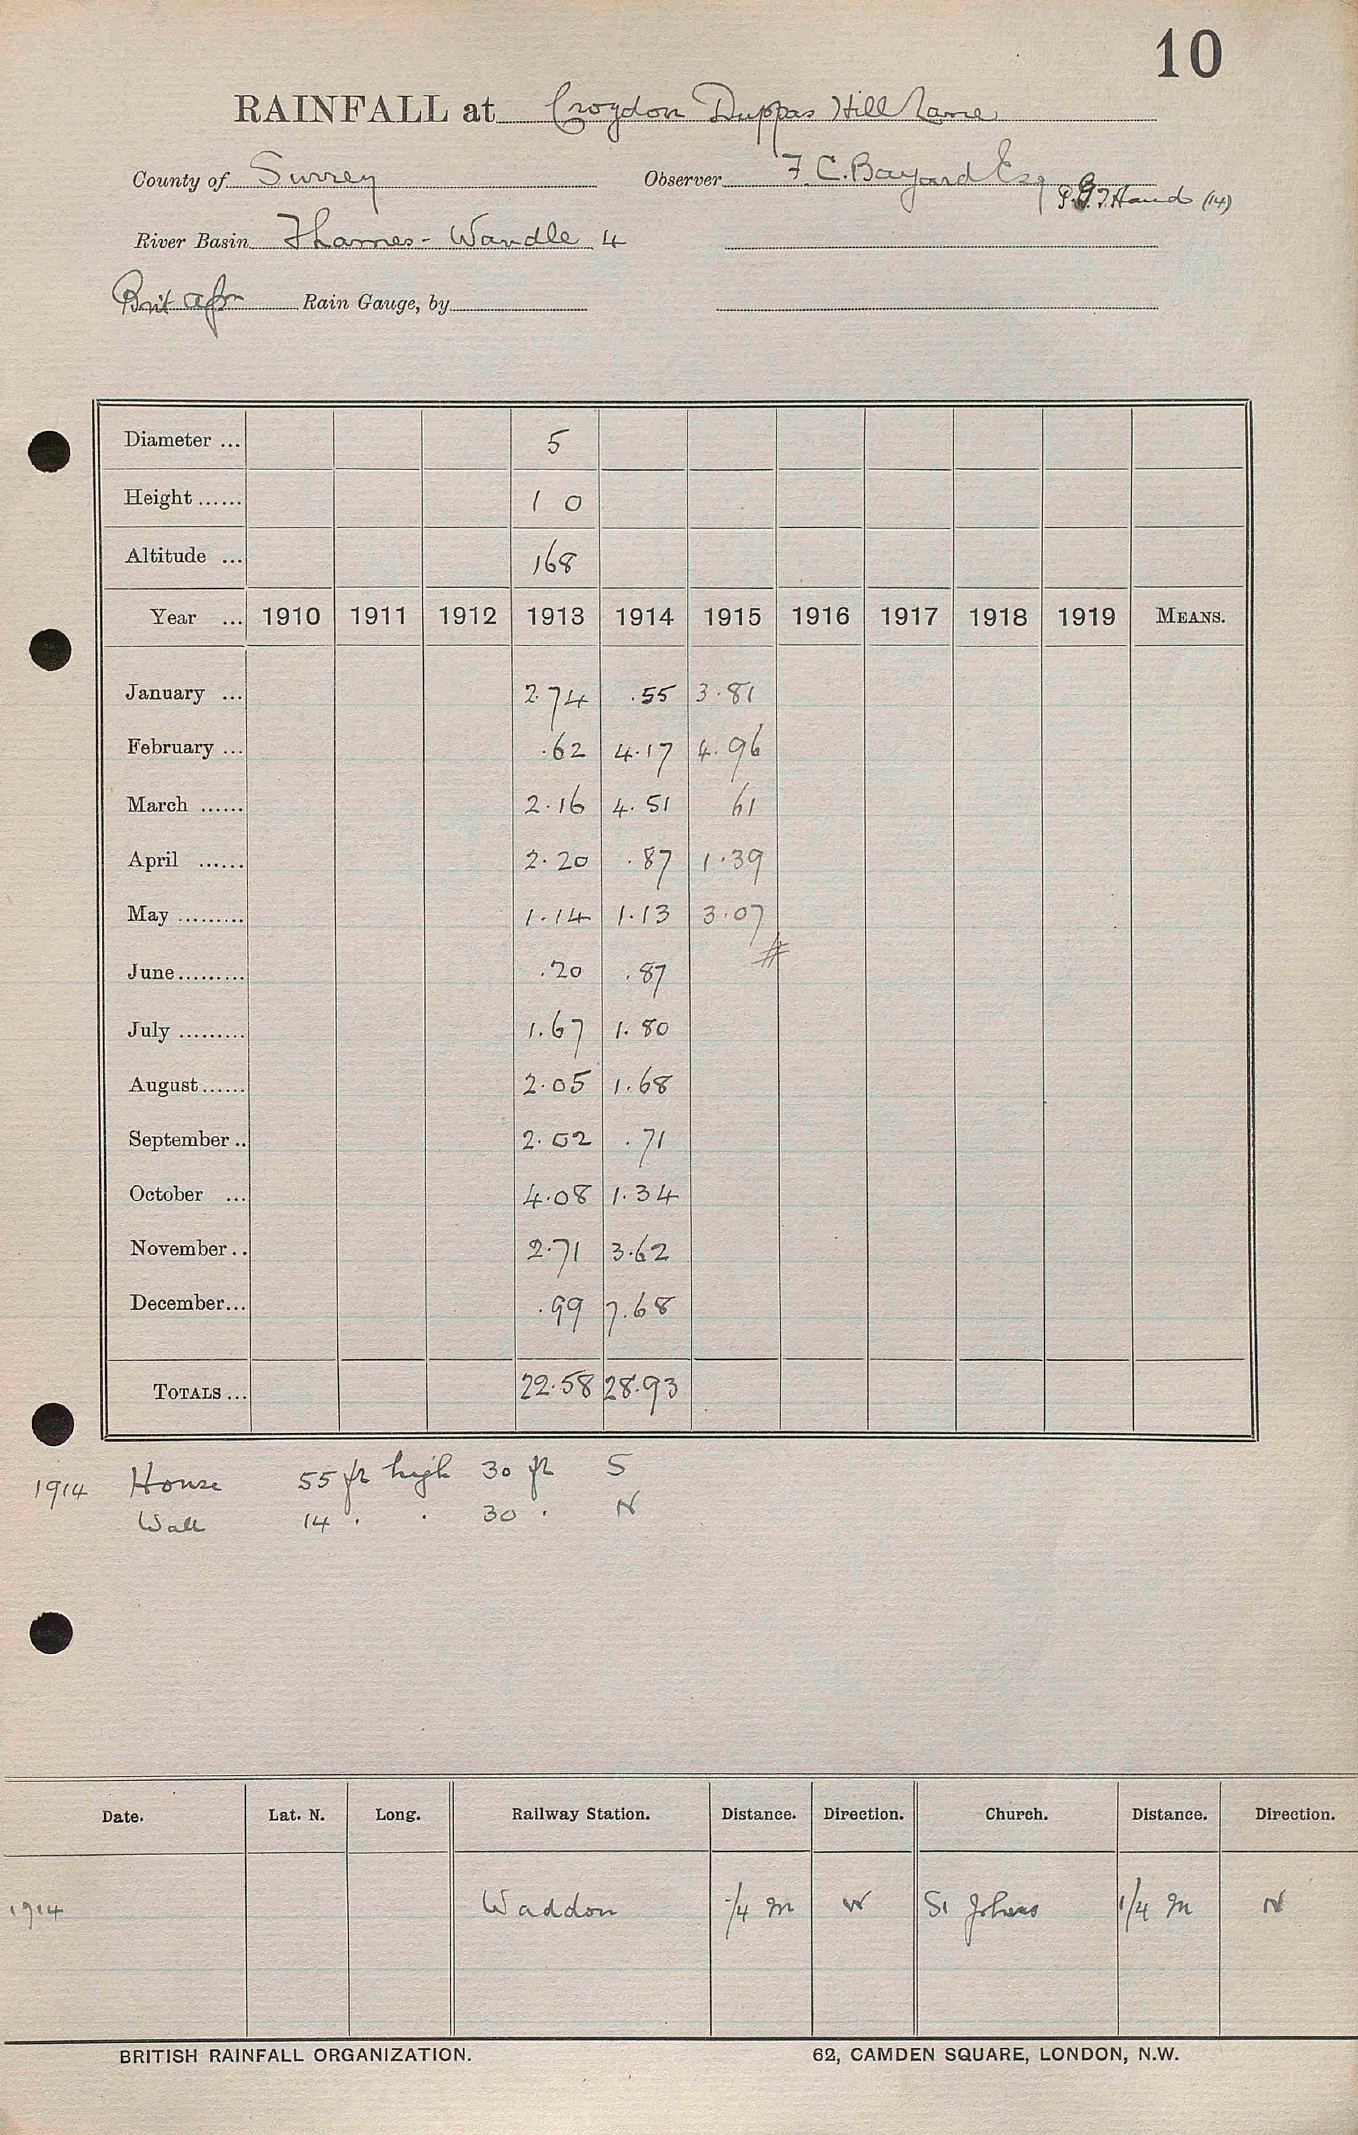 10
RAINFALL at Croydon Duppas Hill Lane
County of Surrey Observer F. C. Bayard Esq
Hands (14)
River Basin Thames - Wandle 4
Brit Rain Gauge, by
Diameter ... 5
Height ...... 1 0
Altitude ... 168
Year ... 1910 1911 1912 1913 1914 1915 1916 1917 1918 1919 MEANS.
January ... 2.74 .55 3.81
February ... .62 4.17 4.96
March ...... 2.16 4.51 61
April ...... 2.20 .87 1.39
May ......... 1.14 1.13 3.07
#
June ......... .20 .87
July ......... 1.67 1.80
August ...... 2.05 1.68
September .. 2.02 .71
October ... 4.08 1.34
November .. 2.71 3.62
December ... .99 7.68
TOTALS ... 22.58 28.93
1914 House 55 ft high 30 ft S
Wall 14 . . 30 . N
Date. Lat. N. Long. Railway Station. Distance. Direction. Church. Distance. Direction.
1914 Waddon 1/4 m W St Johns 1/4 m N
BRITISH RAINFALL ORGANIZATION. 62, CAMDEN SQUARE, LONDON, N.W.